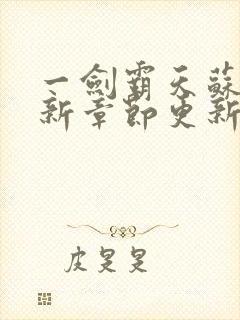 一劍霸天蘇
新章節更新
皮